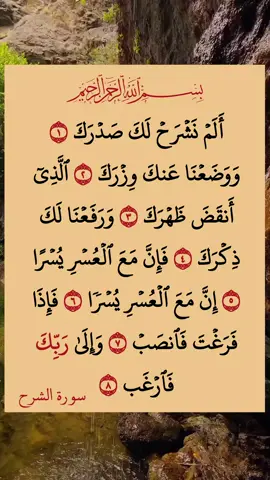 بِسْمِ اللَّهِ الرَّحْمَٰنِ الرَّحِيمِ
أَلَمْ نَشْرَحْ لَكَ صَدْرَكَ ١
وَوَضَعْنَا عَنكَ وِزْرَكَ ٢ ٱلَّذِىٓ
أَنقَضَ ظَهْرَكَ ٣ وَرَفَعْنَا لَكَ
ذِكْرَكَ ٤ فَإِنَّ مَعَ ٱلْعُسْرِ يُسْرًا
٥ إِنَّ مَعَ ٱلْعُسْرِ يُسْرًا ٦ فَإِذَا
فَرَغْتَ فَٱنصَبْ ٧ وَإِلَىٰ رَبِّكَ
فَٱرْغَب ٨
سورة الشرح